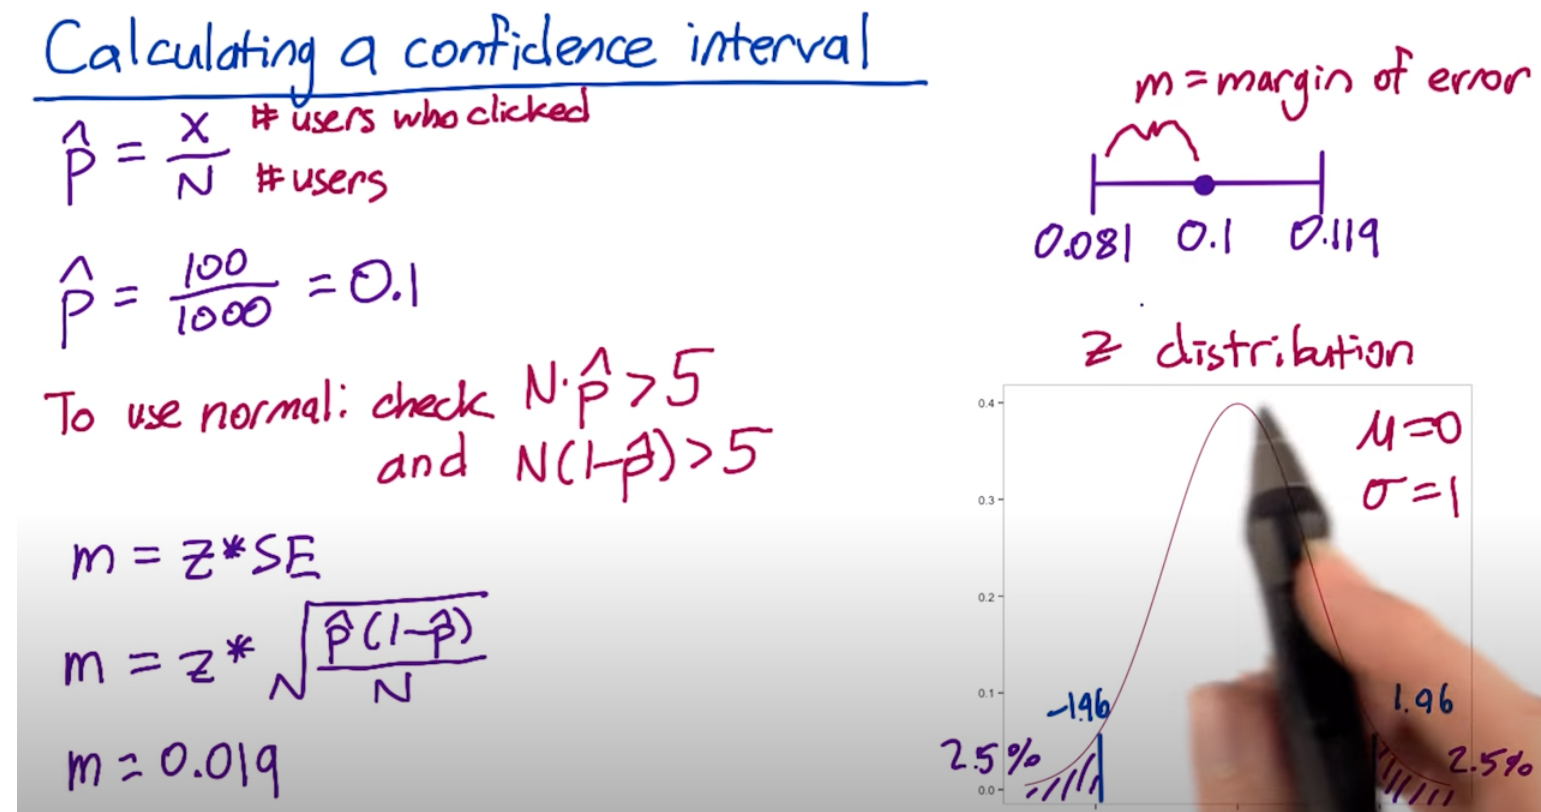 Calculating a confidence interval
p̂ = X/N # users who clicked
# users
p̂ = 100/1000 = 0.1
To use normal: check N·p̂ > 5
and N(1-p̂) > 5
m = z* SE
m = z* √(p̂(1-p̂)/N)
m = 0.019
m = margin of error
0.081 0.1 0.119
z distribution
μ=0
σ=1
0.4
0.3
0.2
0.1
0.0
-1.96 1.96
2.5% 2.5%